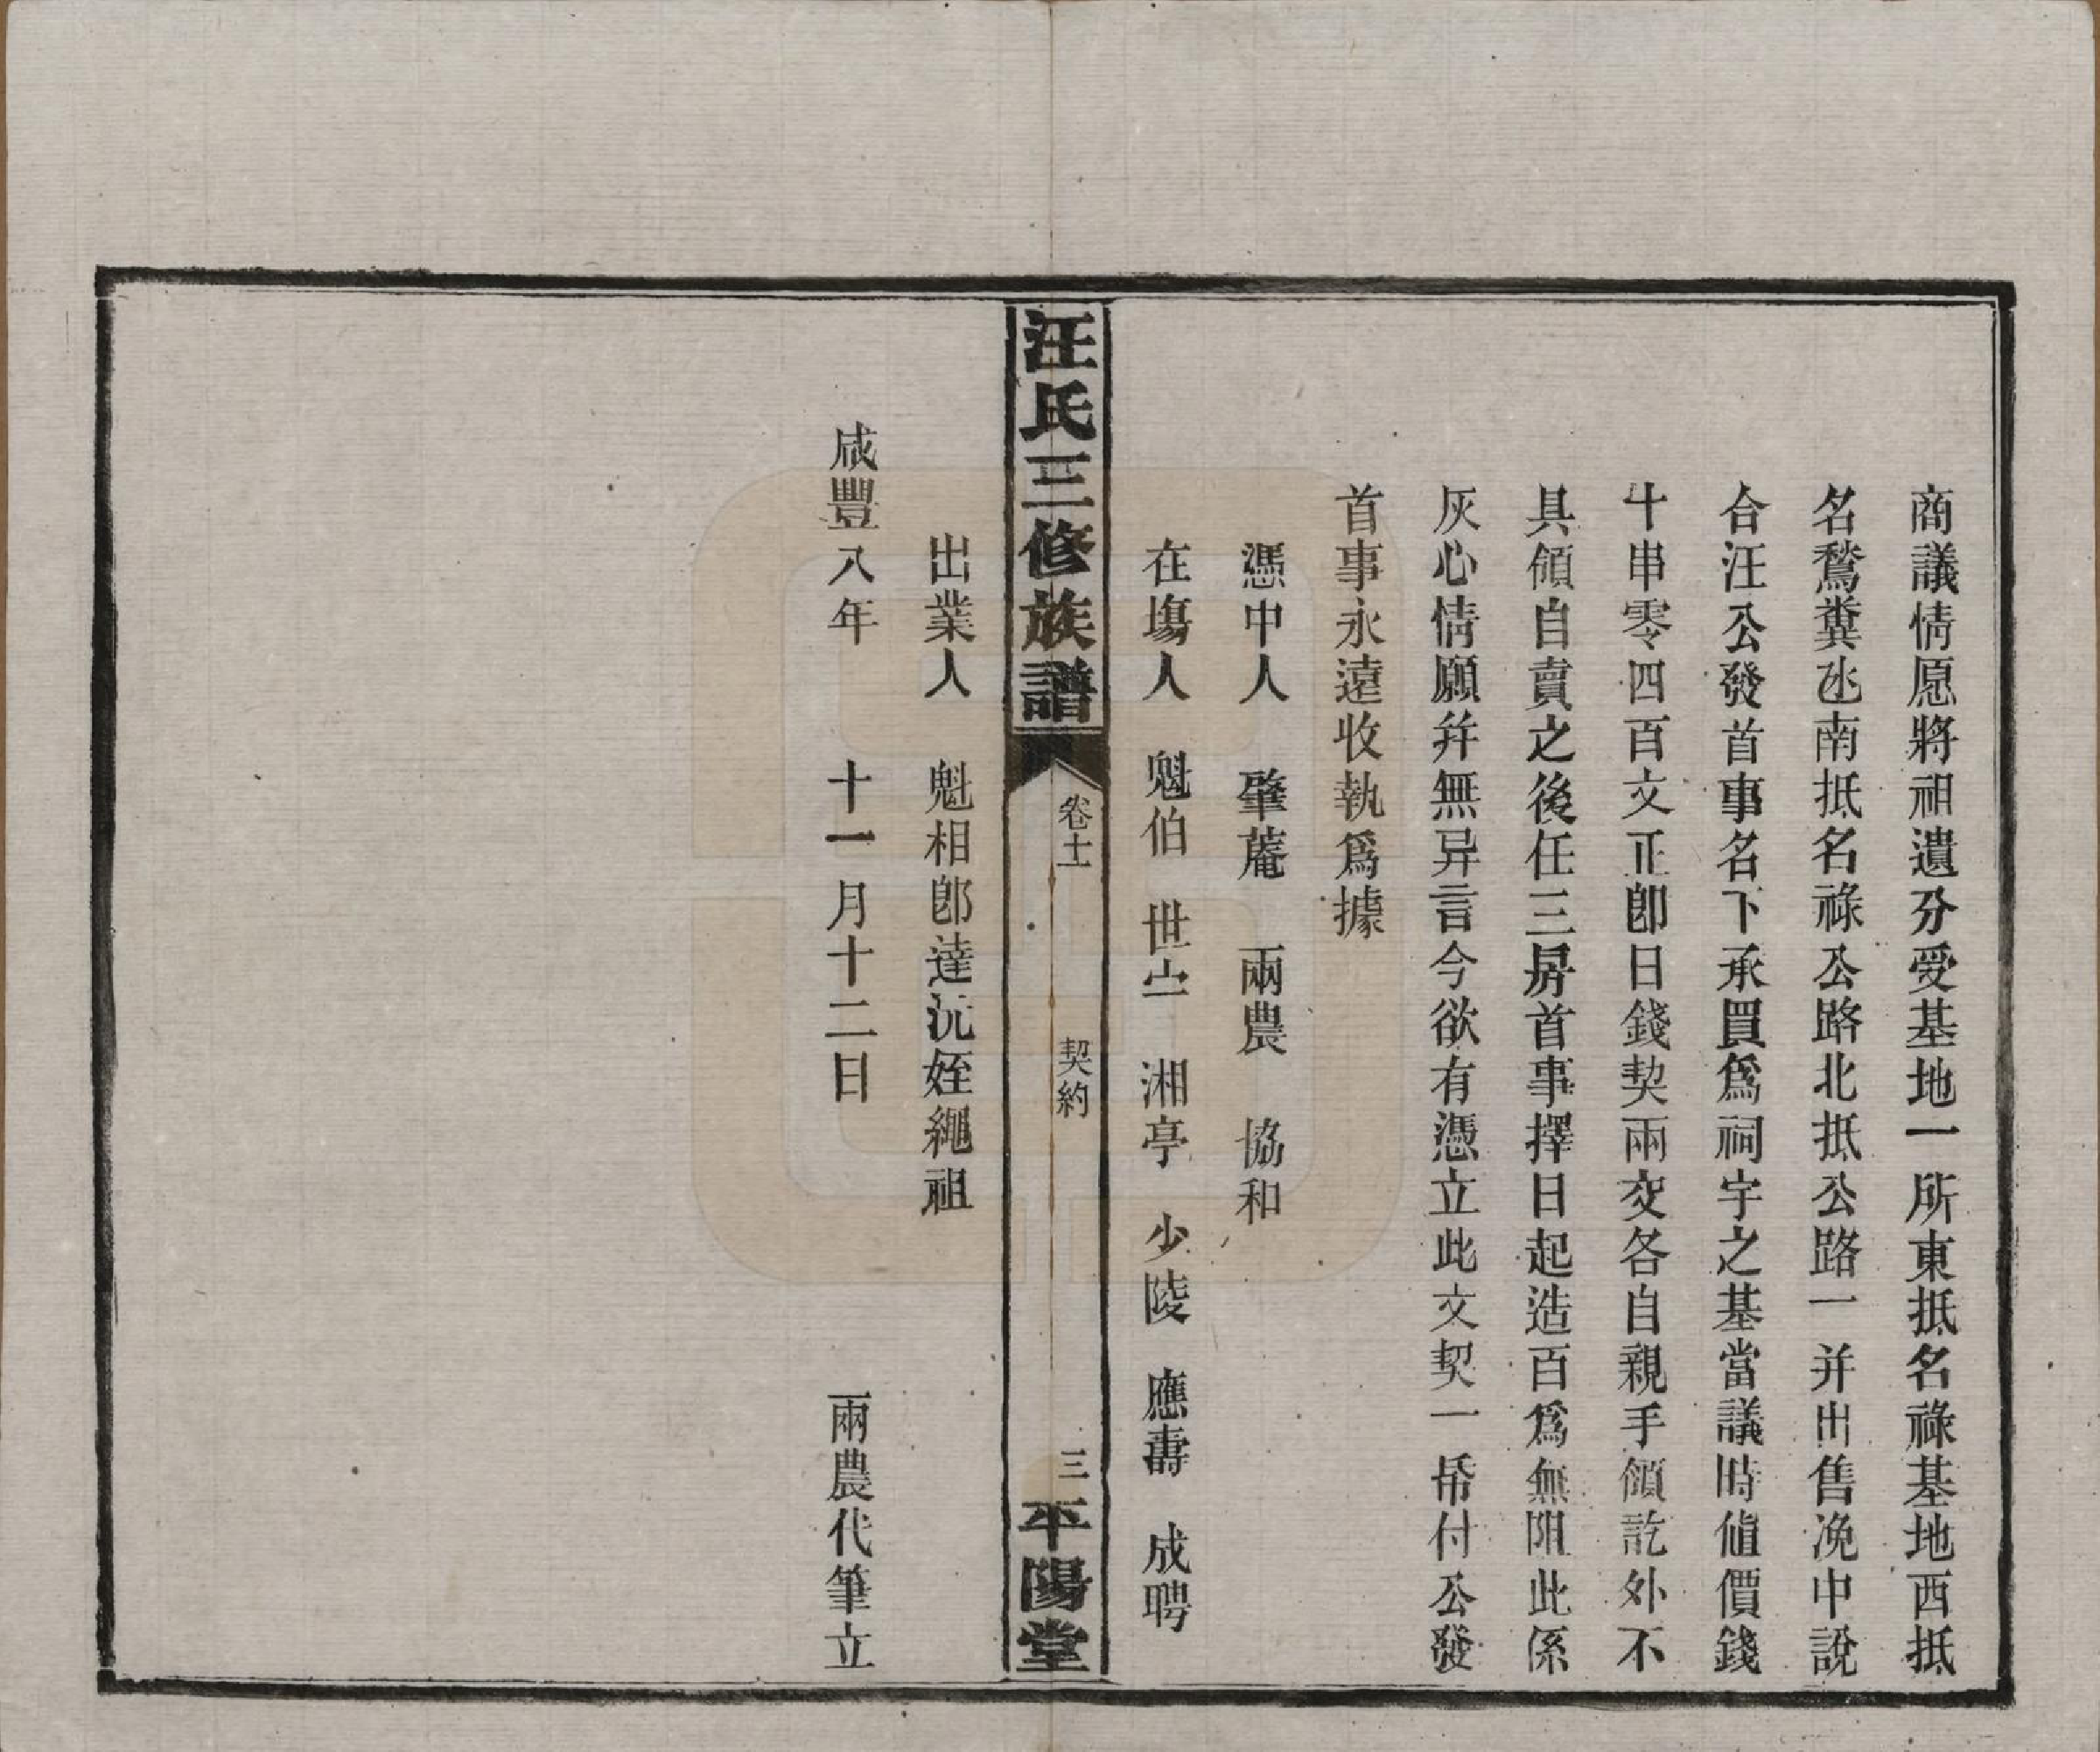 商議情愿將祖遺分受基地一所東抵名祿基地西抵
名鶩糞氹南抵名祿公路北抵公路一并出售浼中說
合汪公發首事名下承買爲祠宇之基當議時值價錢
十串零四百文正卽日錢契兩交各自親手領訖外不
具領自賣之後任三房首事擇日起造百爲無阻此係
灰心情願幷無异言今欲有憑立此文契一帋付公發
首事永遠收執爲據
憑中人 肇菴 兩農 協和
在塲人 魁伯 世 湘亭 少陵 應壽 成聘
汪氏三修族譜 卷十一 契約 三 平陽堂
出業人 魁相郎達沅姪繩祖
咸豐八年 十一月十二日 兩農代筆立